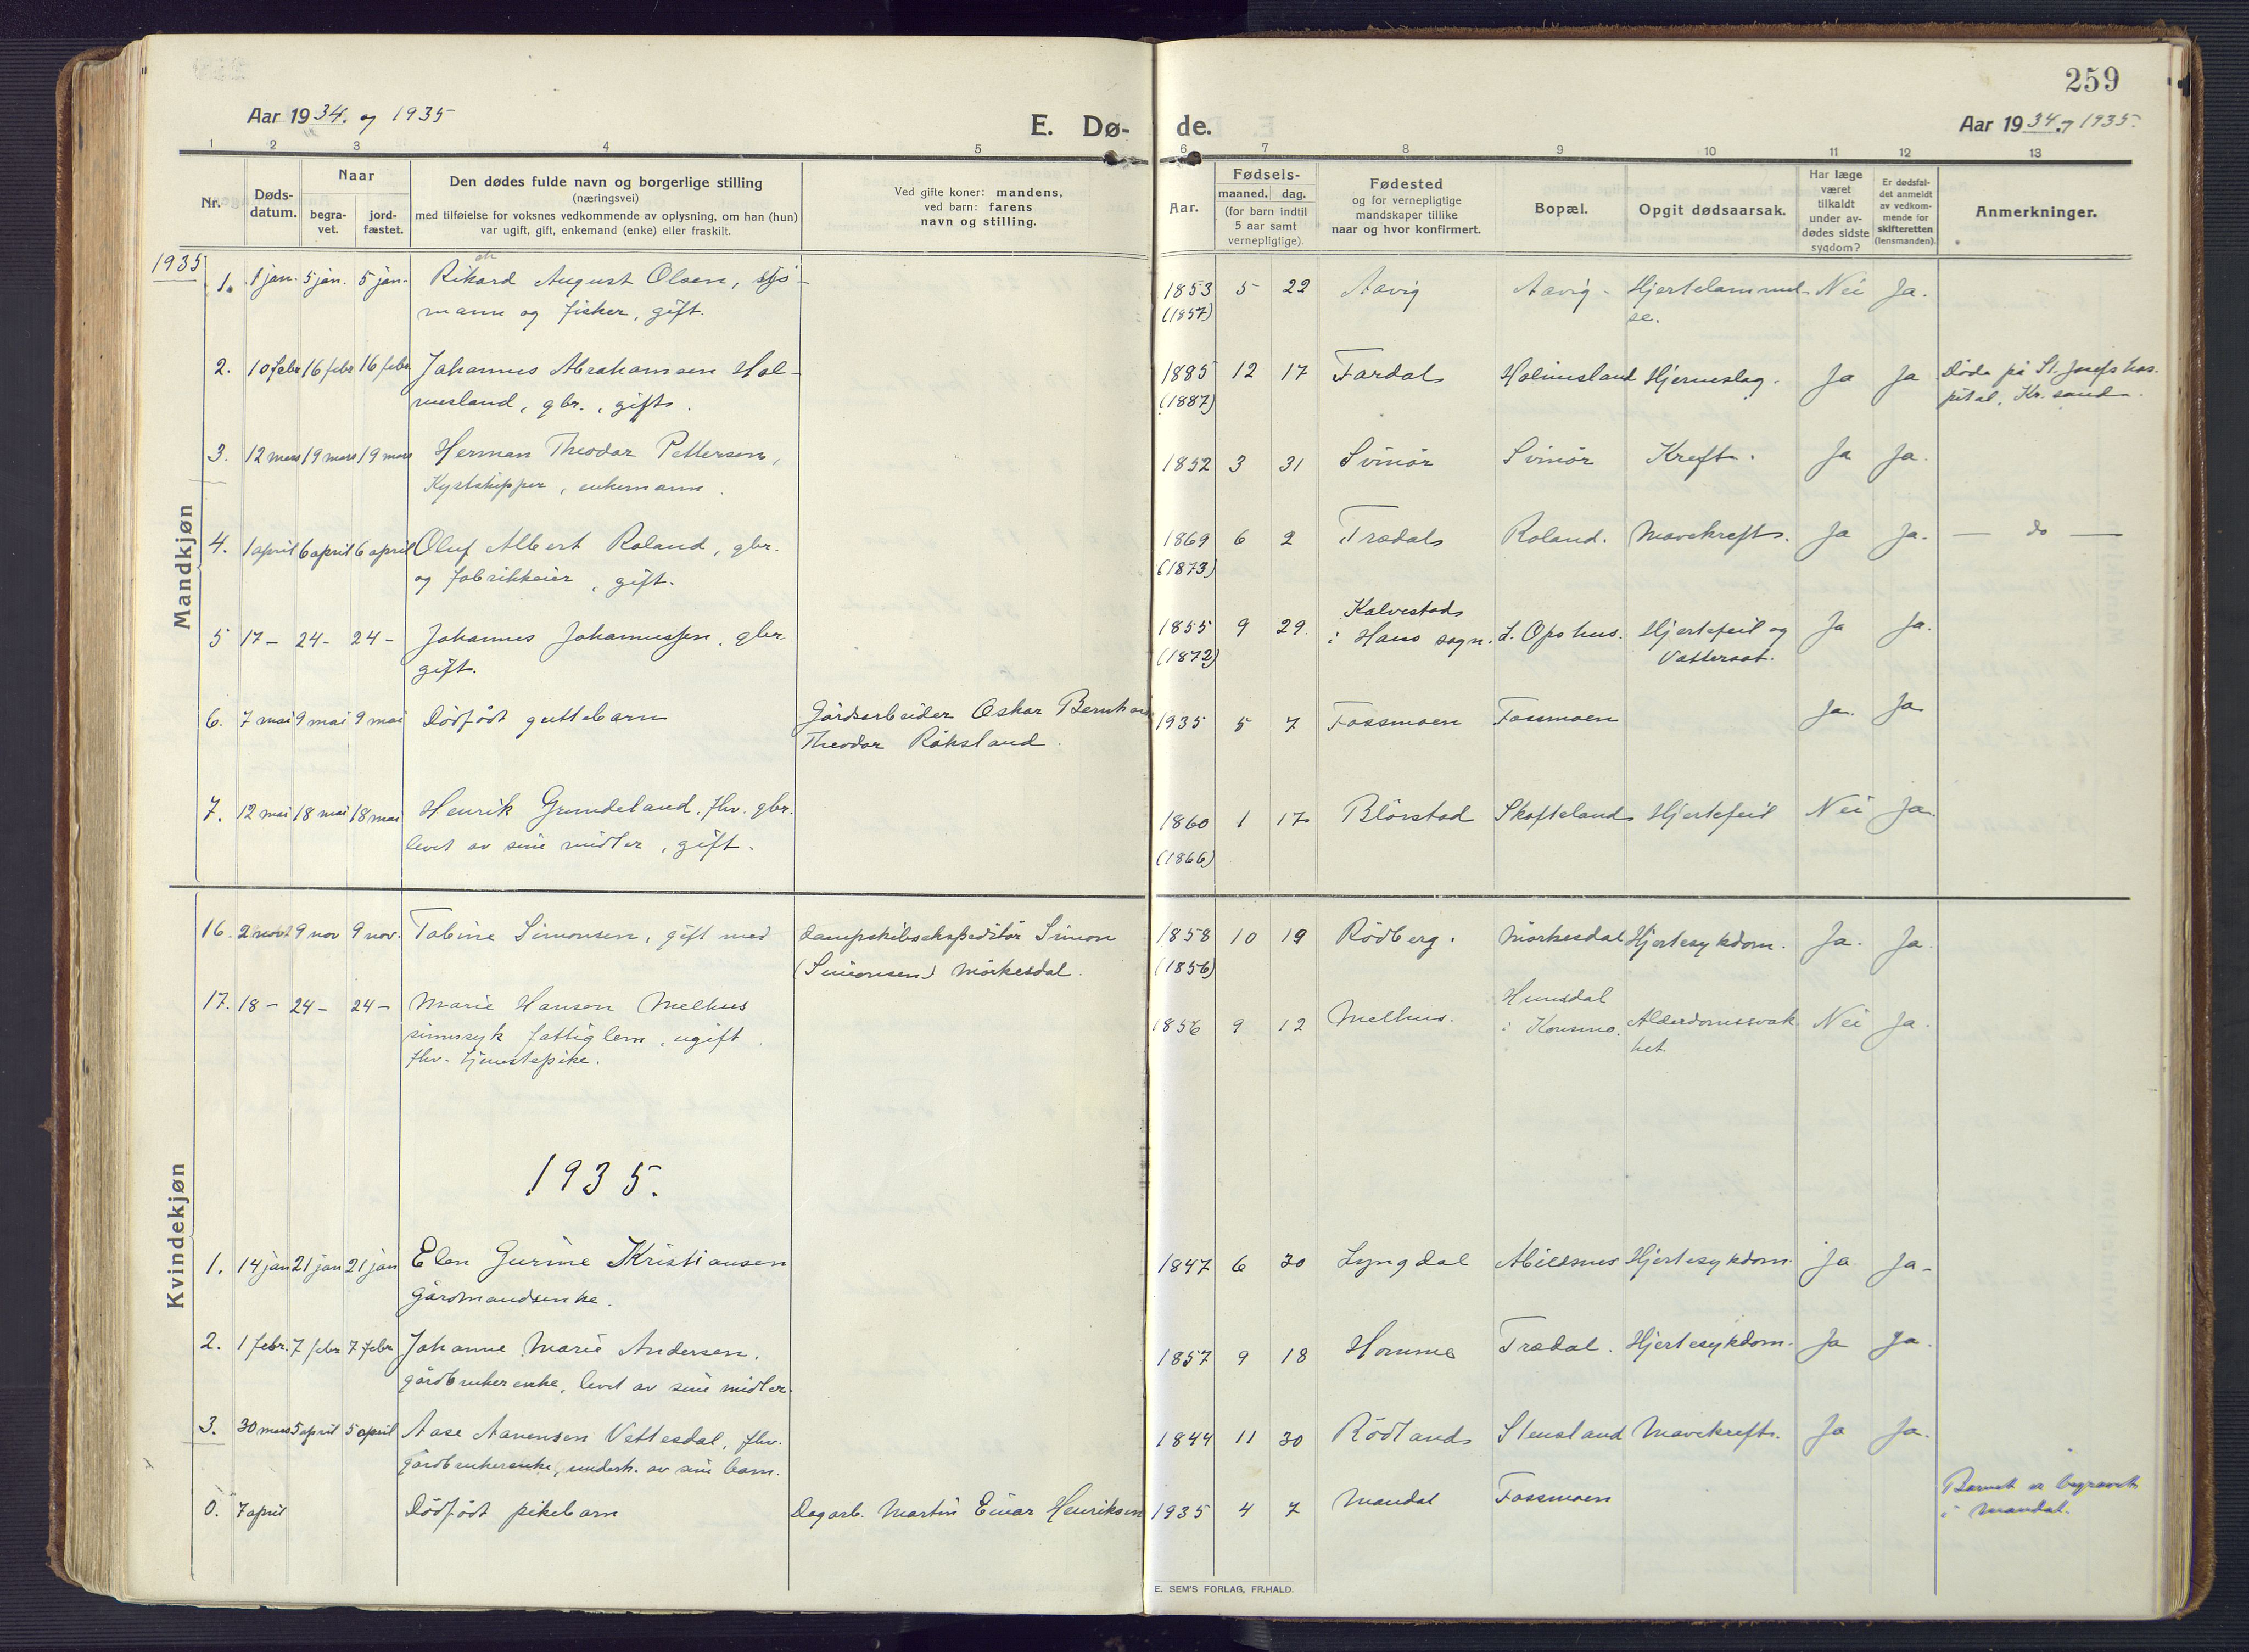 259
Aar 1934. og 1935
E. Dø- de.
Aar 1934. og 1935.
1 2 3 4 5 6 7 8 9 10 11 12 13
Nr.
Døds-
datum.
Naar
begra-
vet.
jord-
fæstet.
Den dødes fulde navn og borgerlige stilling
(næringsvei)
med tilføielse for voksnes vedkommende av oplysning, om han (hun)
var ugift, gift, enkemand (enke) eller fraskilt.
Ved gifte koner: mandens,
ved barn: farens
navn og stilling.
Aar.
Fødsels-
maaned. dag.
(for barn indtil
5 aar samt
vernepligtige)
Fødested
og for vernepligtige
mandskaper tillike
naar og hvor konfirmert.
Bopæl.
Opgit dødsaarsak.
Har læge
været
tilkaldt
under av-
dødes sidste
sygdom?
Er dødsfal-
det anmeldt
av vedkom-
mende for
skifteretten
(lensmanden).
Anmerkninger.
Mandkjøn
1935
1. 1 jan. 5 jan. 5 jan. Rikard August Olsen, sjø- 1853 5 22 Aavig Aavig Hjertelammel- Nei Ja.
mann og fisker, gift. (1857) se.
2. 10 febr 16 febr 16 febr Johannes Abrahamsen Hol- 1885 12 17 Fardal Holmesland Hjerneslag. Ja Ja Døde på St. Josefs hos-
mesland, gbr., gift. (1887) pital, Kr. sand.
3. 12 mars 19 mars 19 mars Herman Theodor Pettersen, 1852 3 31 Svinør Svinør Kreft. Ja Ja.
Kystskipper, enkemann.
4. 1 april 6 april 6 april Oluf Albert Roland, gbr. 1869 6 2 Trædal Roland. Mavekreft. Ja Ja. — do —
og fabrikkeier, gift. (1873)
5 17 – 24 – 24 – Johannes Johannessen, gbr 1855 9 29. Kalvestad i Haus sogn. L. Opshus. Hjertefeil og Ja Ja.
gift. (1872) Vattersot.
6. 7 mai 9 mai 9 mai Dødfødt guttebarn Gårdsarbeider Oskar Bernhard 1935 5 7 Fossmoen Fossmoen Ja. Ja
Theodor Råksland.
7. 12 mai 18 mai 18 mai Henrik Grundeland, fhv. gbr. 1860 1 17 Blørstad Skofteland Hjertefeil Nei Ja.
levet av sine midler, gift. (1866)
Kvindekjøn
16. 2 nov 9 nov 9 nov. Tobine Simonsen, gift med Dampskibsekspeditør Simon 1858 10 19 Rødberg. Mørkesdal Hjertesykdom. Ja. Ja.
(Simonsen) Mørkesdal. (1856)
17. 18 – 24 – 24 – Marie Hansen Melhus 1856 9 12 Melhus. Humsdal i Konsmo. Alderdomssvak- Nei Ja.
sinnsyk fattiglem, ugift het.
fhv. tjenestepike.
1935.
1. 14 jan 21 jan 21 jan Elen Gurine Kristiansen 1847 6 30 Lyngdal Abilsnes Hjertesykdom. Ja Ja.
gårdmandsenke.
2. 1 febr. 7 febr 7 febr Johanne Marie Andersen, 1857 9 18 Homme Trædal. Hjertesykdom. Ja Ja.
gårdbrukerenke, levet av sine midler.
3. 30 mars 5 april 5 april Aase Aanensen Vettesdal, fhv. 1844 11 30 Rødland Stensland Mavekreft. Ja Ja.
gårdbrukerenke, underh. av sine barn.
0. 7 april Dødfødt pikebarn Dagarb. Martin Einar Henriksen 1935 4 7 Mandal Fossmoen Barnet er begravet
i Mandal.
E. SEM'S FORLAG, FR.HALD.